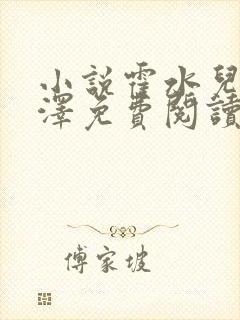 小說霍水兒
澤免費閱讀
傅家坡